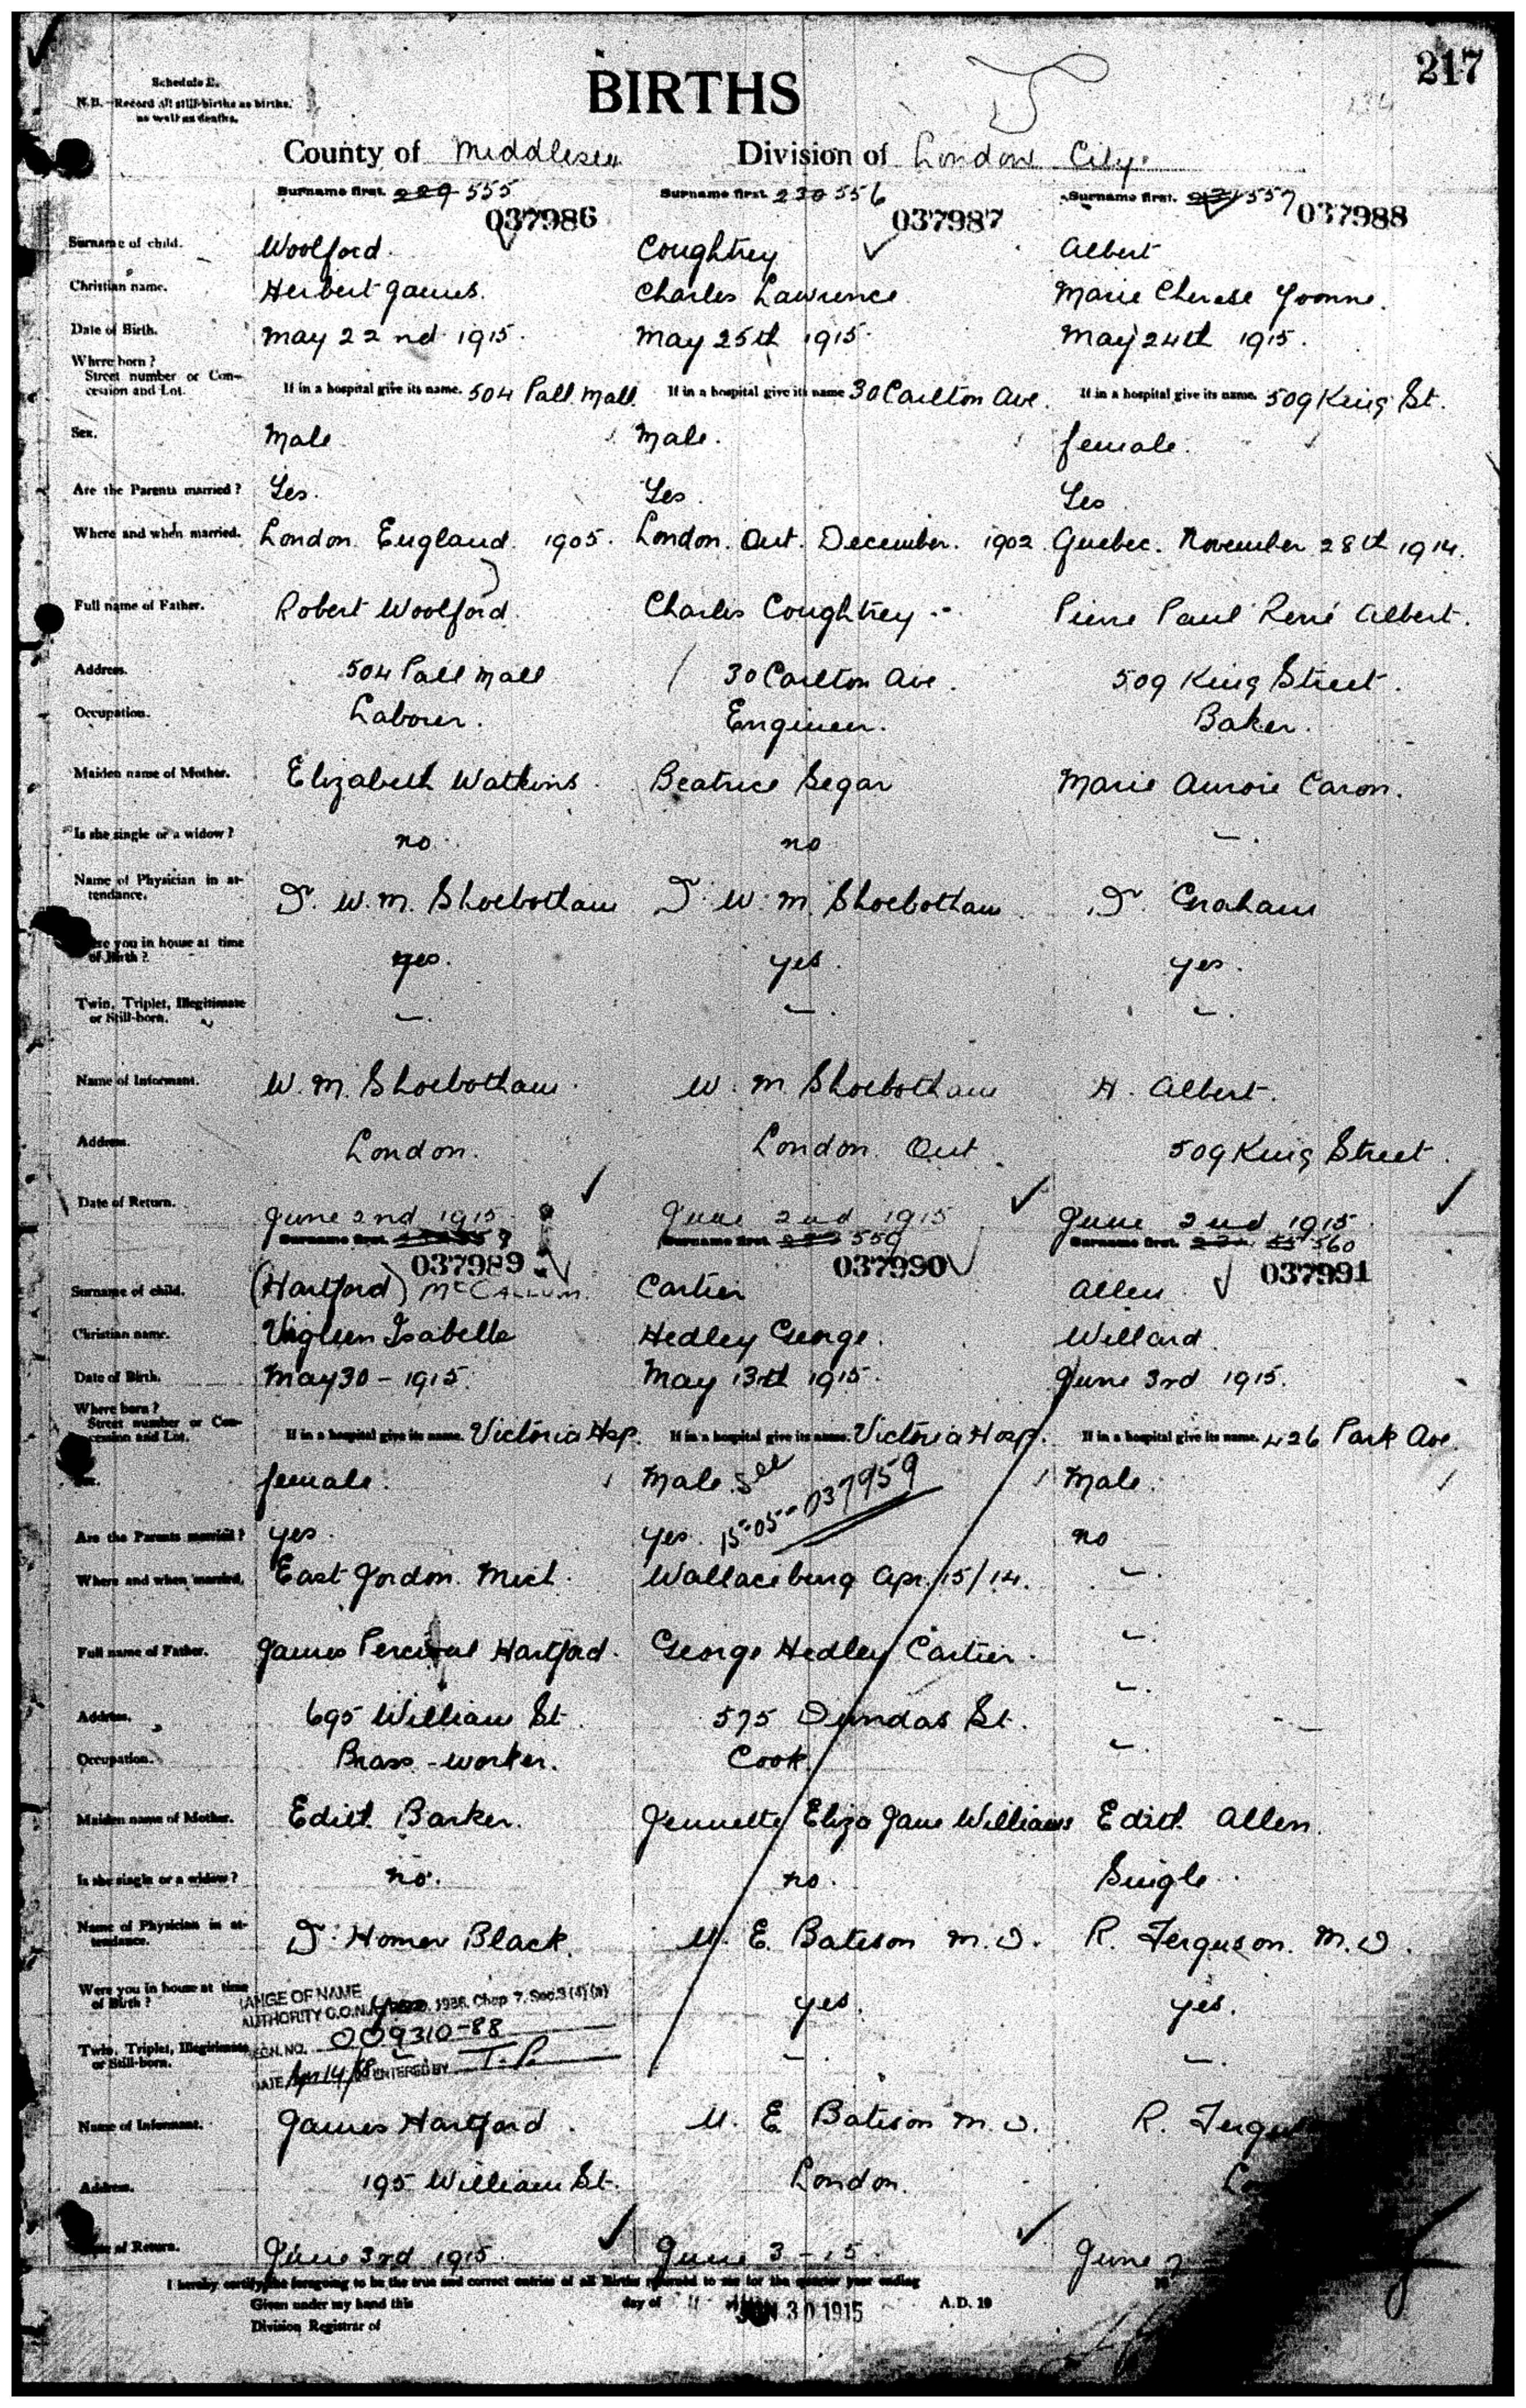 217
Schedule B.
N.B.—Record all still-births as births, as well as deaths.
BIRTHS
County of Middlesex Division of London City.
Surname first. 229 555 Surname first. 230 556 Surname first. 231 557
037986 037987 037988
Surname of child. Woolford. Coughtrey Albert
Christian name. Herbert James. Charles Lawrence. Marie Cherese Yvonne.
Date of Birth. May 22nd 1915. May 25th 1915. May 24th 1915.
Where born?
Street number or Concession and Lot. If in a hospital give its name. 504 Pall Mall. If in a hospital give its name 30 Carlton Ave. If in a hospital give its name. 509 King St.
Sex. Male. Male. female.
Are the Parents married? Yes. Yes. Yes
Where and when married. London England. 1905. London. Ont. December. 1902. Quebec. November 28th 1914.
Full name of Father. Robert Woolford. Charles Coughtrey Pierre Paul René Albert.
Address. 504 Pall Mall 30 Carlton Ave. 509 King Street.
Occupation. Labourer. Engineer. Baker.
Maiden name of Mother. Elizabeth Watkins. Beatrice Segar Marie Aurore Caron.
Is she single or a widow? no. no —.
Name of Physician in attendance. Dr. W. M. Shoebotham Dr. W. M. Shoebotham Dr. Graham
Were you in house at time of Birth? yes. yes. yes.
Twin, Triplet, Illegitimate or Still-born. —. —. —.
Name of Informant. W. M. Shoebotham. W. M. Shoebotham H. Albert.
Address. London. London Ont. 509 King Street.
Date of Return. June 2nd 1915. June 2nd 1915 June 2nd 1915
Surname first. Surname first. 559 Surname first. 560
037989 037990 037991
Surname of child. (Hartford) McCallum. Cartier Allen
Christian name. Isabelle Hedley George. Willard.
Date of Birth. May 30 - 1915. May 13th 1915. June 3rd 1915.
Where born?
Street number or Concession and Lot. If in a hospital give its name. Victoria Hsp. If in a hospital give its name. Victoria Hosp. If in a hospital give its name. 426 Park Ave.
Sex. female. Male. See Male.
Are the Parents married? yes. yes. 15-05-037959 no
Where and when married. East Jordon. Mich. Wallaceburg Apr. 15/14. —.
Full name of Father. James Percival Hartford. George Hedley Cartier. —.
Address. 695 William St. 575 Dundas St. —.
Occupation. Brass-worker. Cook —.
Maiden name of Mother. Edith Barker. Jennette Eliza Jane Williams Edith Allen.
Is she single or a widow? no. no. Single.
Name of Physician in attendance. Dr. Homer Black. E. Bateson M.D. R. Ferguson. M.D.
Were you in house at time of Birth? yes. yes.
ANGE OF NAME
AUTHORITY C.O.N.A. 1986, Chap 7, Sec.3(4)(a)
GN. NO. 009310-88
DATE Apr 14/88 ENTERED BY T.P.
Twin, Triplet, Illegitimate or Still-born. — —. —.
Name of Informant. James Hartford. E. Bateson M.D. R. Fergu
Address. 195 William St. London. Lo
Date of Return. June 3rd 1915. June 3 - 15. June
I hereby certify the foregoing to be the true and correct entries of all Births returned to me for the quarter year ending
Given under my hand this day of JUN 30 1915 A.D. 19
Division Registrar of